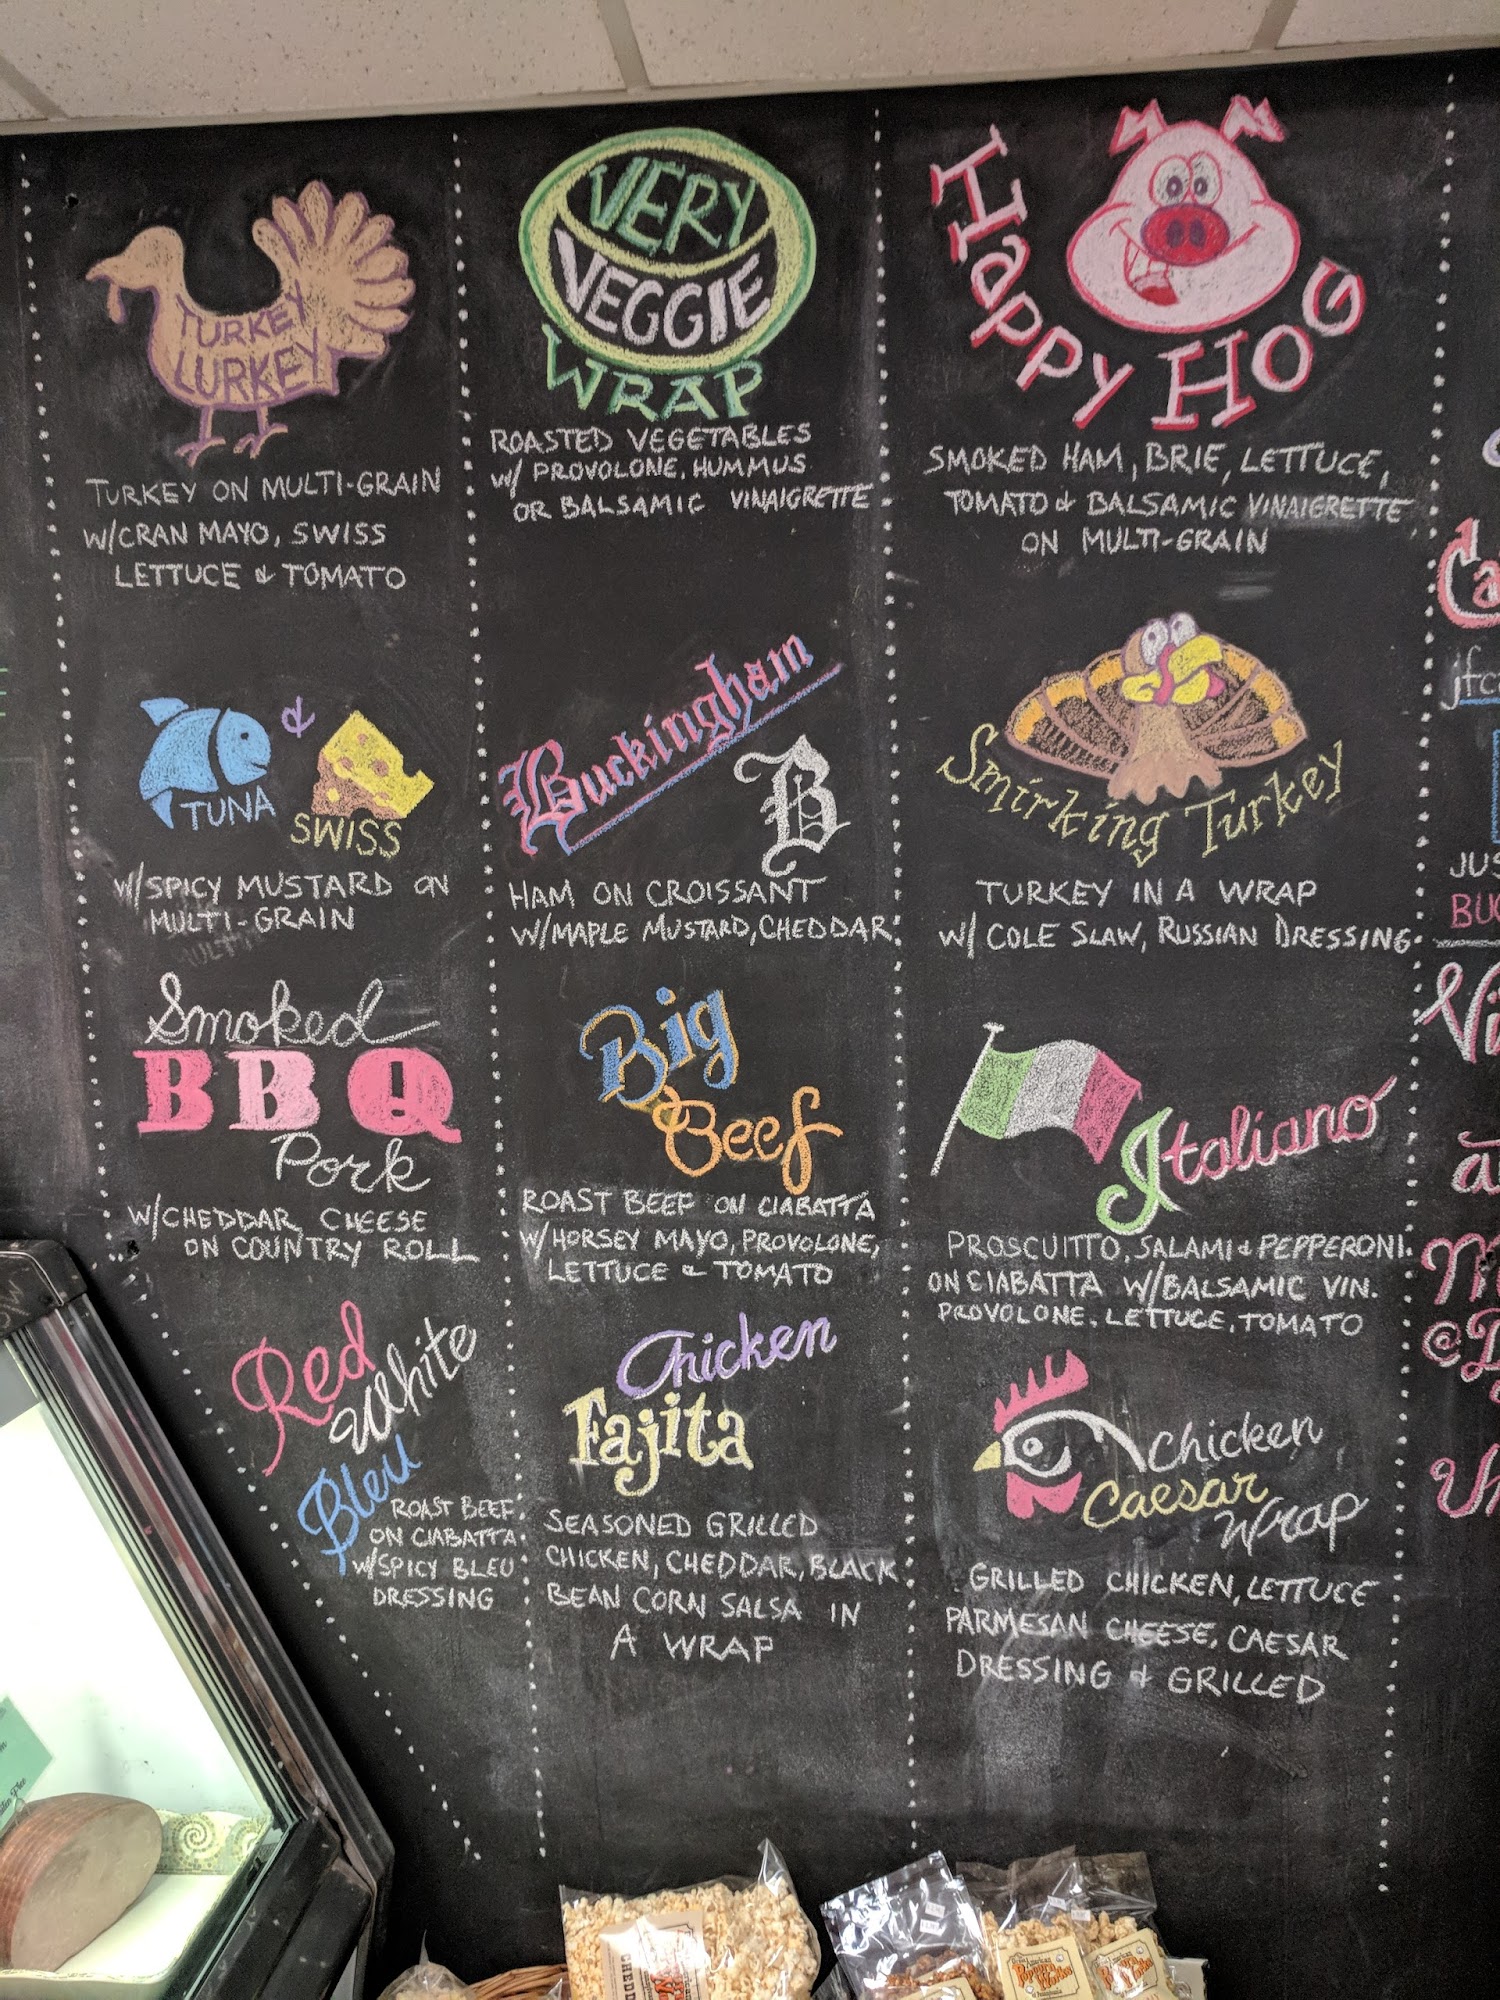 TURKEY
LURKEY
TURKEY ON MULTI-GRAIN
W/CRAN MAYO, SWISS
LETTUCE & TOMATO
VERY
VEGGIE
WRAP
ROASTED VEGETABLES
W/ PROVOLONE, HUMMUS
OR BALSAMIC VINAIGRETTE
Happy Hog
SMOKED HAM, BRIE, LETTUCE,
TOMATO & BALSAMIC VINAIGRETTE
ON MULTI-GRAIN
&
TUNA
SWISS
W/SPICY MUSTARD ON
MULTI-GRAIN
Buckingham
B
HAM ON CROISSANT
W/MAPLE MUSTARD, CHEDDAR
Smirking Turkey
TURKEY IN A WRAP
W/ COLE SLAW, RUSSIAN DRESSING
Smoked
BBQ
Pork
W/CHEDDAR CHEESE
ON COUNTRY ROLL
Big
Beef
ROAST BEEF ON CIABATTA
W/HORSEY MAYO, PROVOLONE,
LETTUCE & TOMATO
Italiano
PROSCUITTO, SALAMI & PEPPERONI
ON CIABATTA W/BALSAMIC VIN.
PROVOLONE, LETTUCE, TOMATO
Red
White
Bleu
ROAST BEEF
ON CIABATTA
W/SPICY BLEU
DRESSING
Chicken
Fajita
SEASONED GRILLED
CHICKEN, CHEDDAR, BLACK
BEAN CORN SALSA IN
A WRAP
Chicken
Caesar
Wrap
GRILLED CHICKEN, LETTUCE
PARMESAN CHEESE, CAESAR
DRESSING & GRILLED